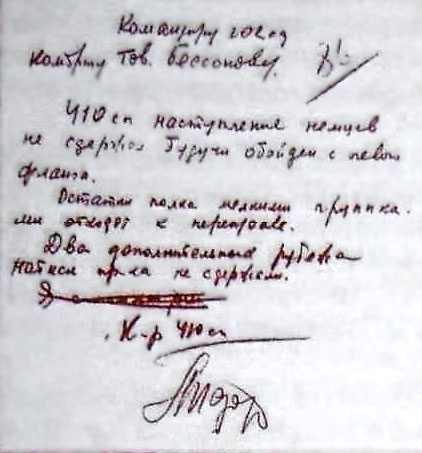 Командиру 102 сд
комбригу тов. Бессонову.
410 сп наступление немцев
не сдержал будучи обойден с левого
фланга.
Остатки полка мелкими группка-
ми отходят к переправе.
Два дополнительные рубежа
натиск пр-ка не сдержали.
К-р 410 сп